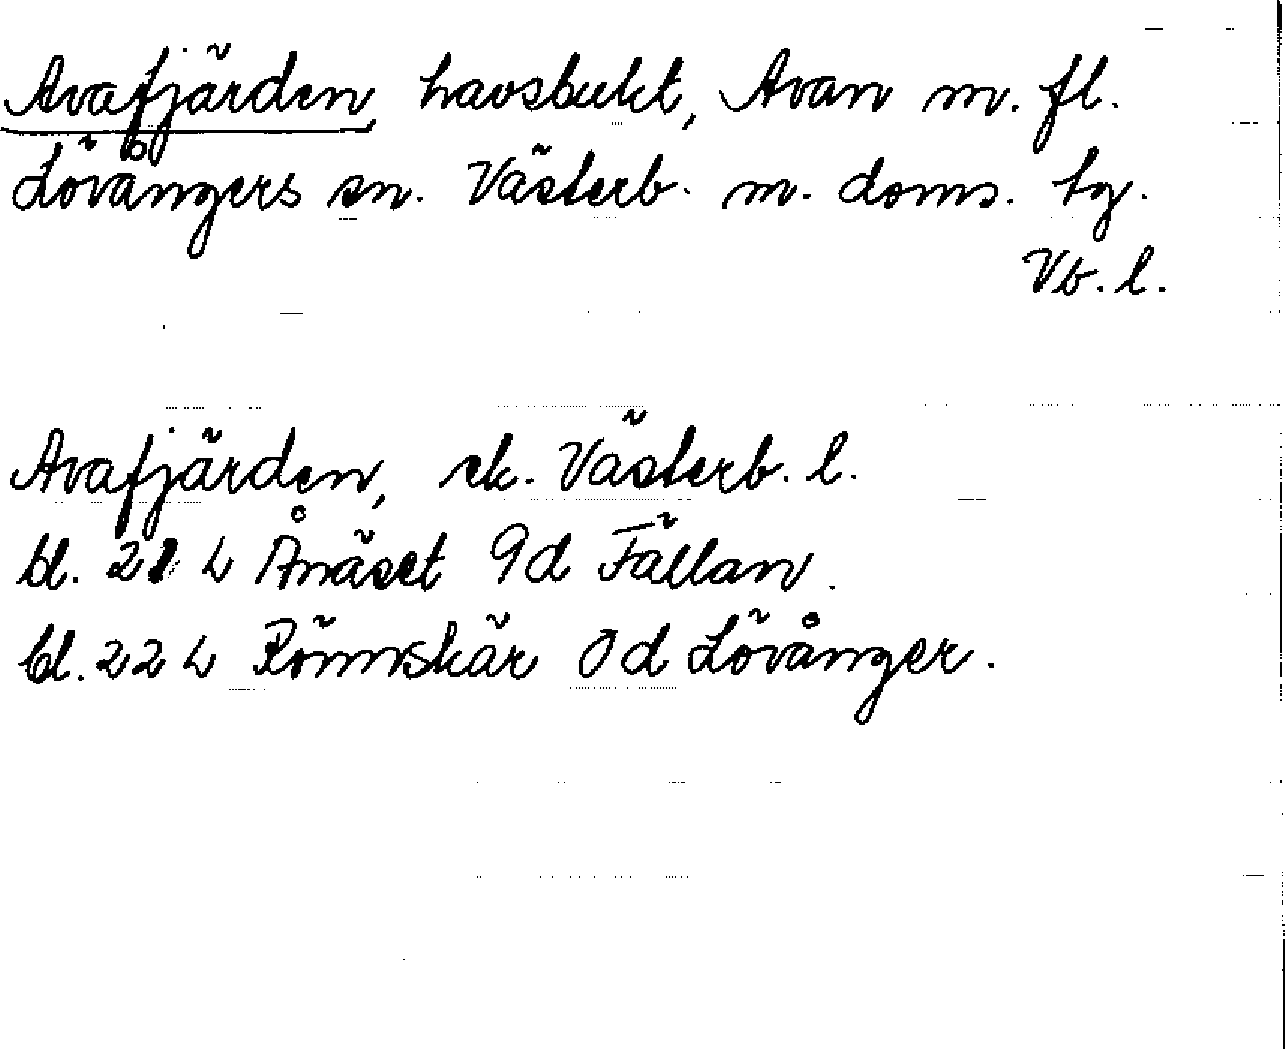 Avafjärden, havsbukt, Avan m. fl.
Lövångers sn. Västerb. m. doms. tg.
Vb. l.
Avafjärden, ek. Västerb. l.
bl. 21 L Ånäset 9d Fällan.
bl. 22 L Rönnskär 0d Lövånger.